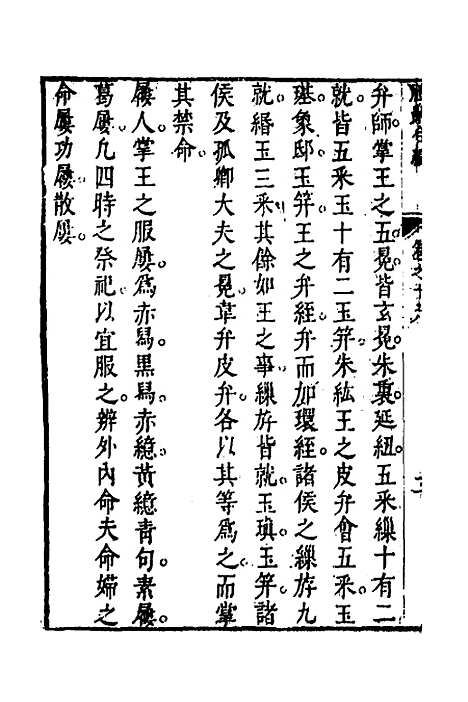 弁師掌王之五冕皆玄冕朱裏延紐五采繅十有二
就皆五采玉十有二玉笄朱紘王之皮弁會五采玉
璂象邸玉笄王之弁絰弁而加環絰諸侯之繅斿九
就緡玉三采其餘如王之事繅斿皆就玉瑱玉笄諸
侯及孤卿大夫之冕韋弁皮弁各以其等爲之而掌
其禁命
屨人掌王之服屨爲赤舄黑舄赤繶黃繶青句素屨
葛屨凡四時之祭祀以宜服之辨外內命夫命婦之
命屨功屨散屨